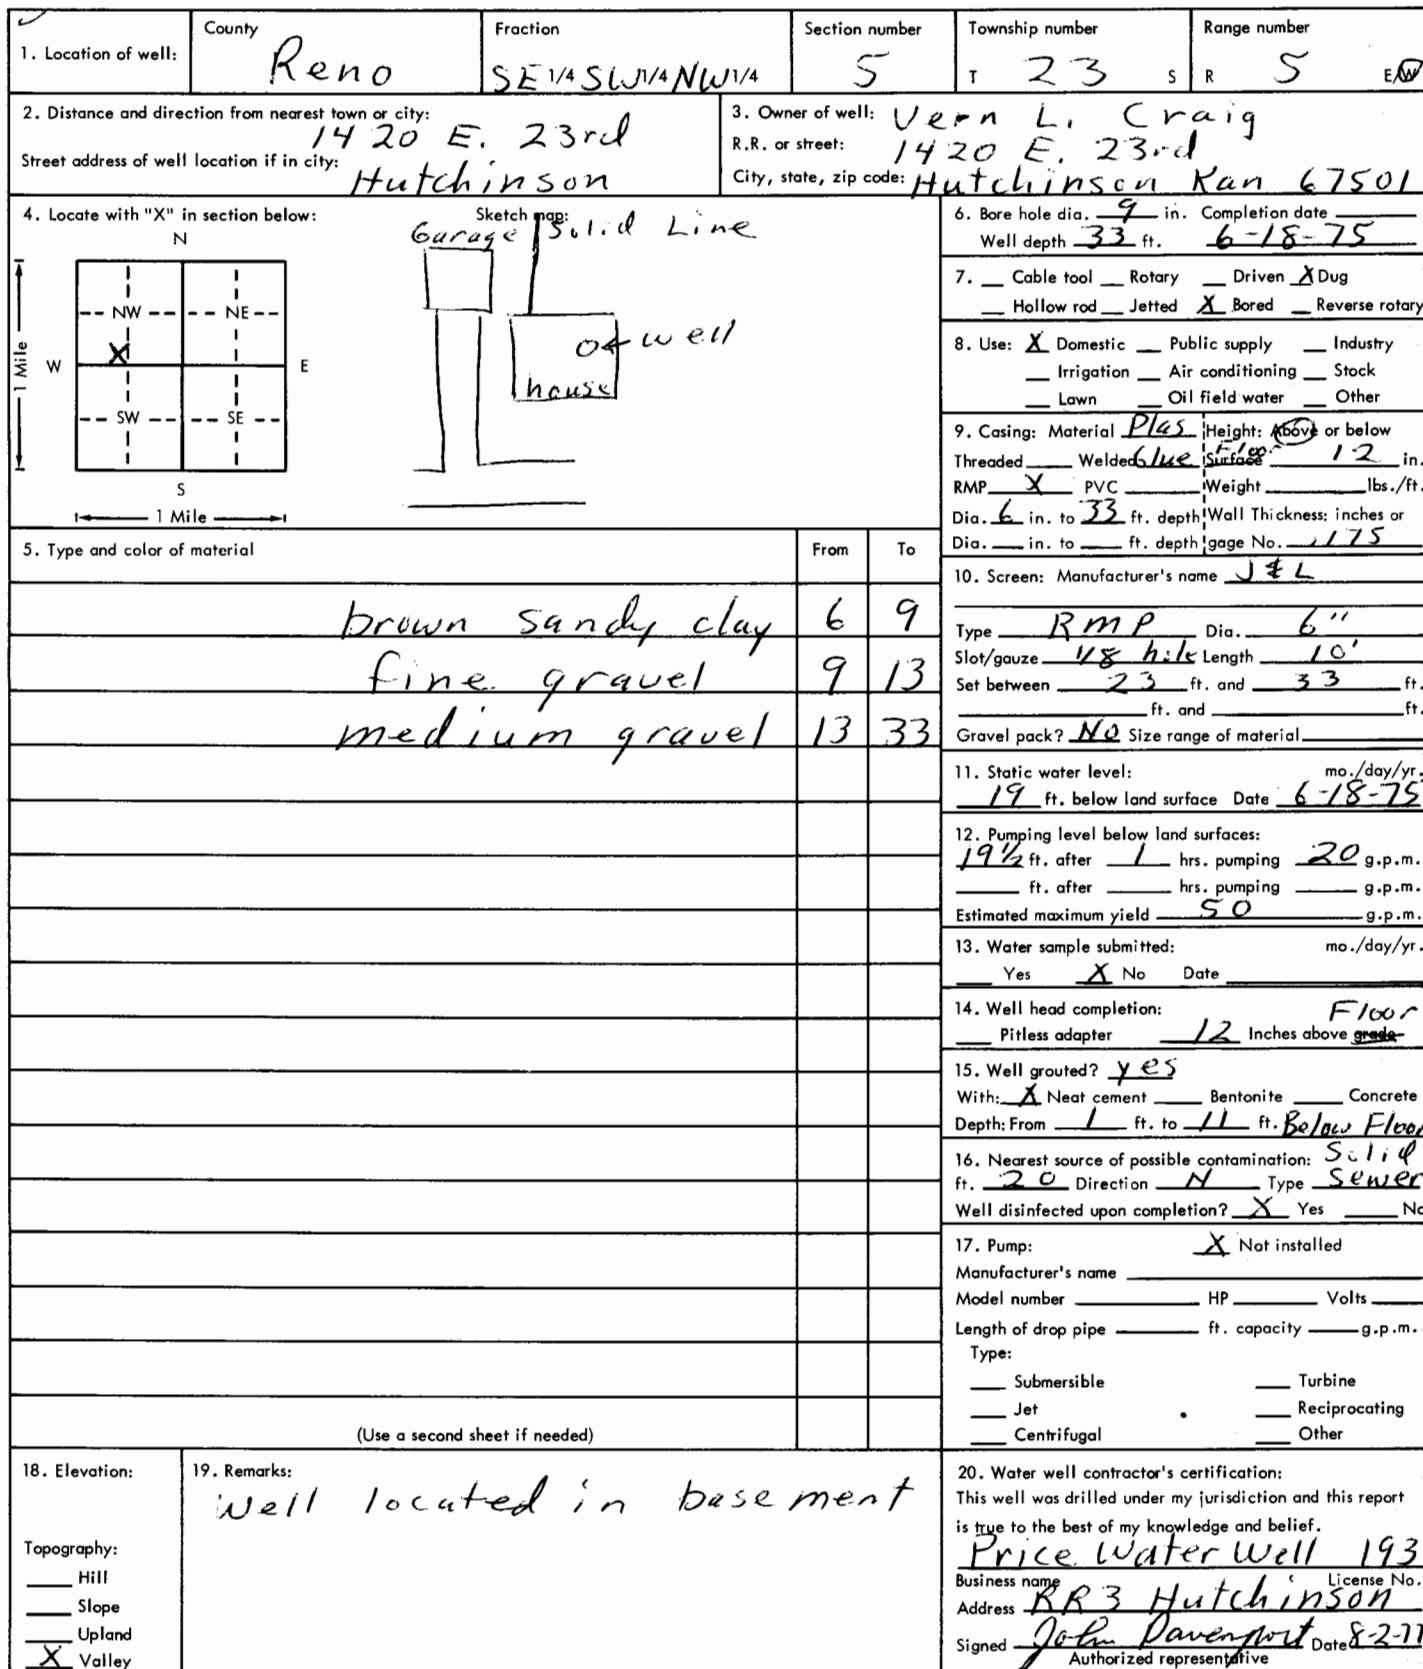 1. Location of well: County Reno Fraction SE 1/4 SW 1/4 NW 1/4 Section number 5 Township number T 23 S Range number R 5 E/W
2. Distance and direction from nearest town or city:
1420 E. 23rd
Street address of well location if in city: Hutchinson
3. Owner of well: Vern L. Craig
R.R. or street: 1420 E. 23rd
City, state, zip code: Hutchinson Kan 67501
4. Locate with "X" in section below:
N
NW NE
X
W E
SW SE
S
1 Mile
1 Mile
Sketch map:
Garage Solid Line
well
house
5. Type and color of material From To
brown sandy clay 6 9
fine gravel 9 13
medium gravel 13 33
(Use a second sheet if needed)
6. Bore hole dia. 9 in. Completion date
Well depth 33 ft. 6-18-75
7. Cable tool Rotary Driven X Dug
Hollow rod Jetted X Bored Reverse rotary
8. Use: X Domestic Public supply Industry
Irrigation Air conditioning Stock
Lawn Oil field water Other
9. Casing: Material Plas Height: Above or below
Threaded Welded Glue Surface Floor 12 in.
RMP X PVC Weight lbs./ft.
Dia. 6 in. to 33 ft. depth Wall Thickness: inches or
Dia. in. to ft. depth gage No. .175
10. Screen: Manufacturer's name J & L
Type RMP Dia. 6"
Slot/gauze 1/8 Length 10'
Set between 23 ft. and 33 ft.
ft. and ft.
Gravel pack? NO Size range of material
11. Static water level: mo./day/yr.
19 ft. below land surface Date 6-18-75
12. Pumping level below land surfaces:
19 1/2 ft. after 1 hrs. pumping 20 g.p.m.
ft. after hrs. pumping g.p.m.
Estimated maximum yield 50 g.p.m.
13. Water sample submitted: mo./day/yr.
Yes X No Date
14. Well head completion: Floor
Pitless adapter 12 Inches above grade
15. Well grouted? yes
With: X Neat cement Bentonite Concrete
Depth: From 1 ft. to 11 ft. Below Floor
16. Nearest source of possible contamination: Solid
ft. 20 Direction N Type Sewer
Well disinfected upon completion? X Yes No
17. Pump: X Not installed
Manufacturer's name
Model number HP Volts
Length of drop pipe ft. capacity g.p.m.
Type:
Submersible Turbine
Jet Reciprocating
Centrifugal Other
18. Elevation:
Topography:
Hill
Slope
Upland
X Valley
19. Remarks:
Well located in basement
20. Water well contractor's certification:
This well was drilled under my jurisdiction and this report
is true to the best of my knowledge and belief.
Price Water Well 193
Business name License No.
Address RR 3 Hutchinson
Signed John Davenport Date 8-2-77
Authorized representative